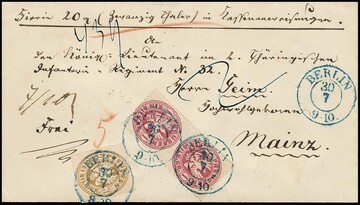 Hierin 20 (Zwanzig Thaler) in Kassenanweisungen.
An
den Königl. Lieutenant im 2. Thüringischen
Infanterie-Regiment No 32.
Herrn
Hochwohlgeboren
Mainz
Frei
5
BERLIN
30
7
9-10.
BERLIN
30
7
9-10.
BERLIN
30
7
9-10.
BERLIN
30
7
9-10.